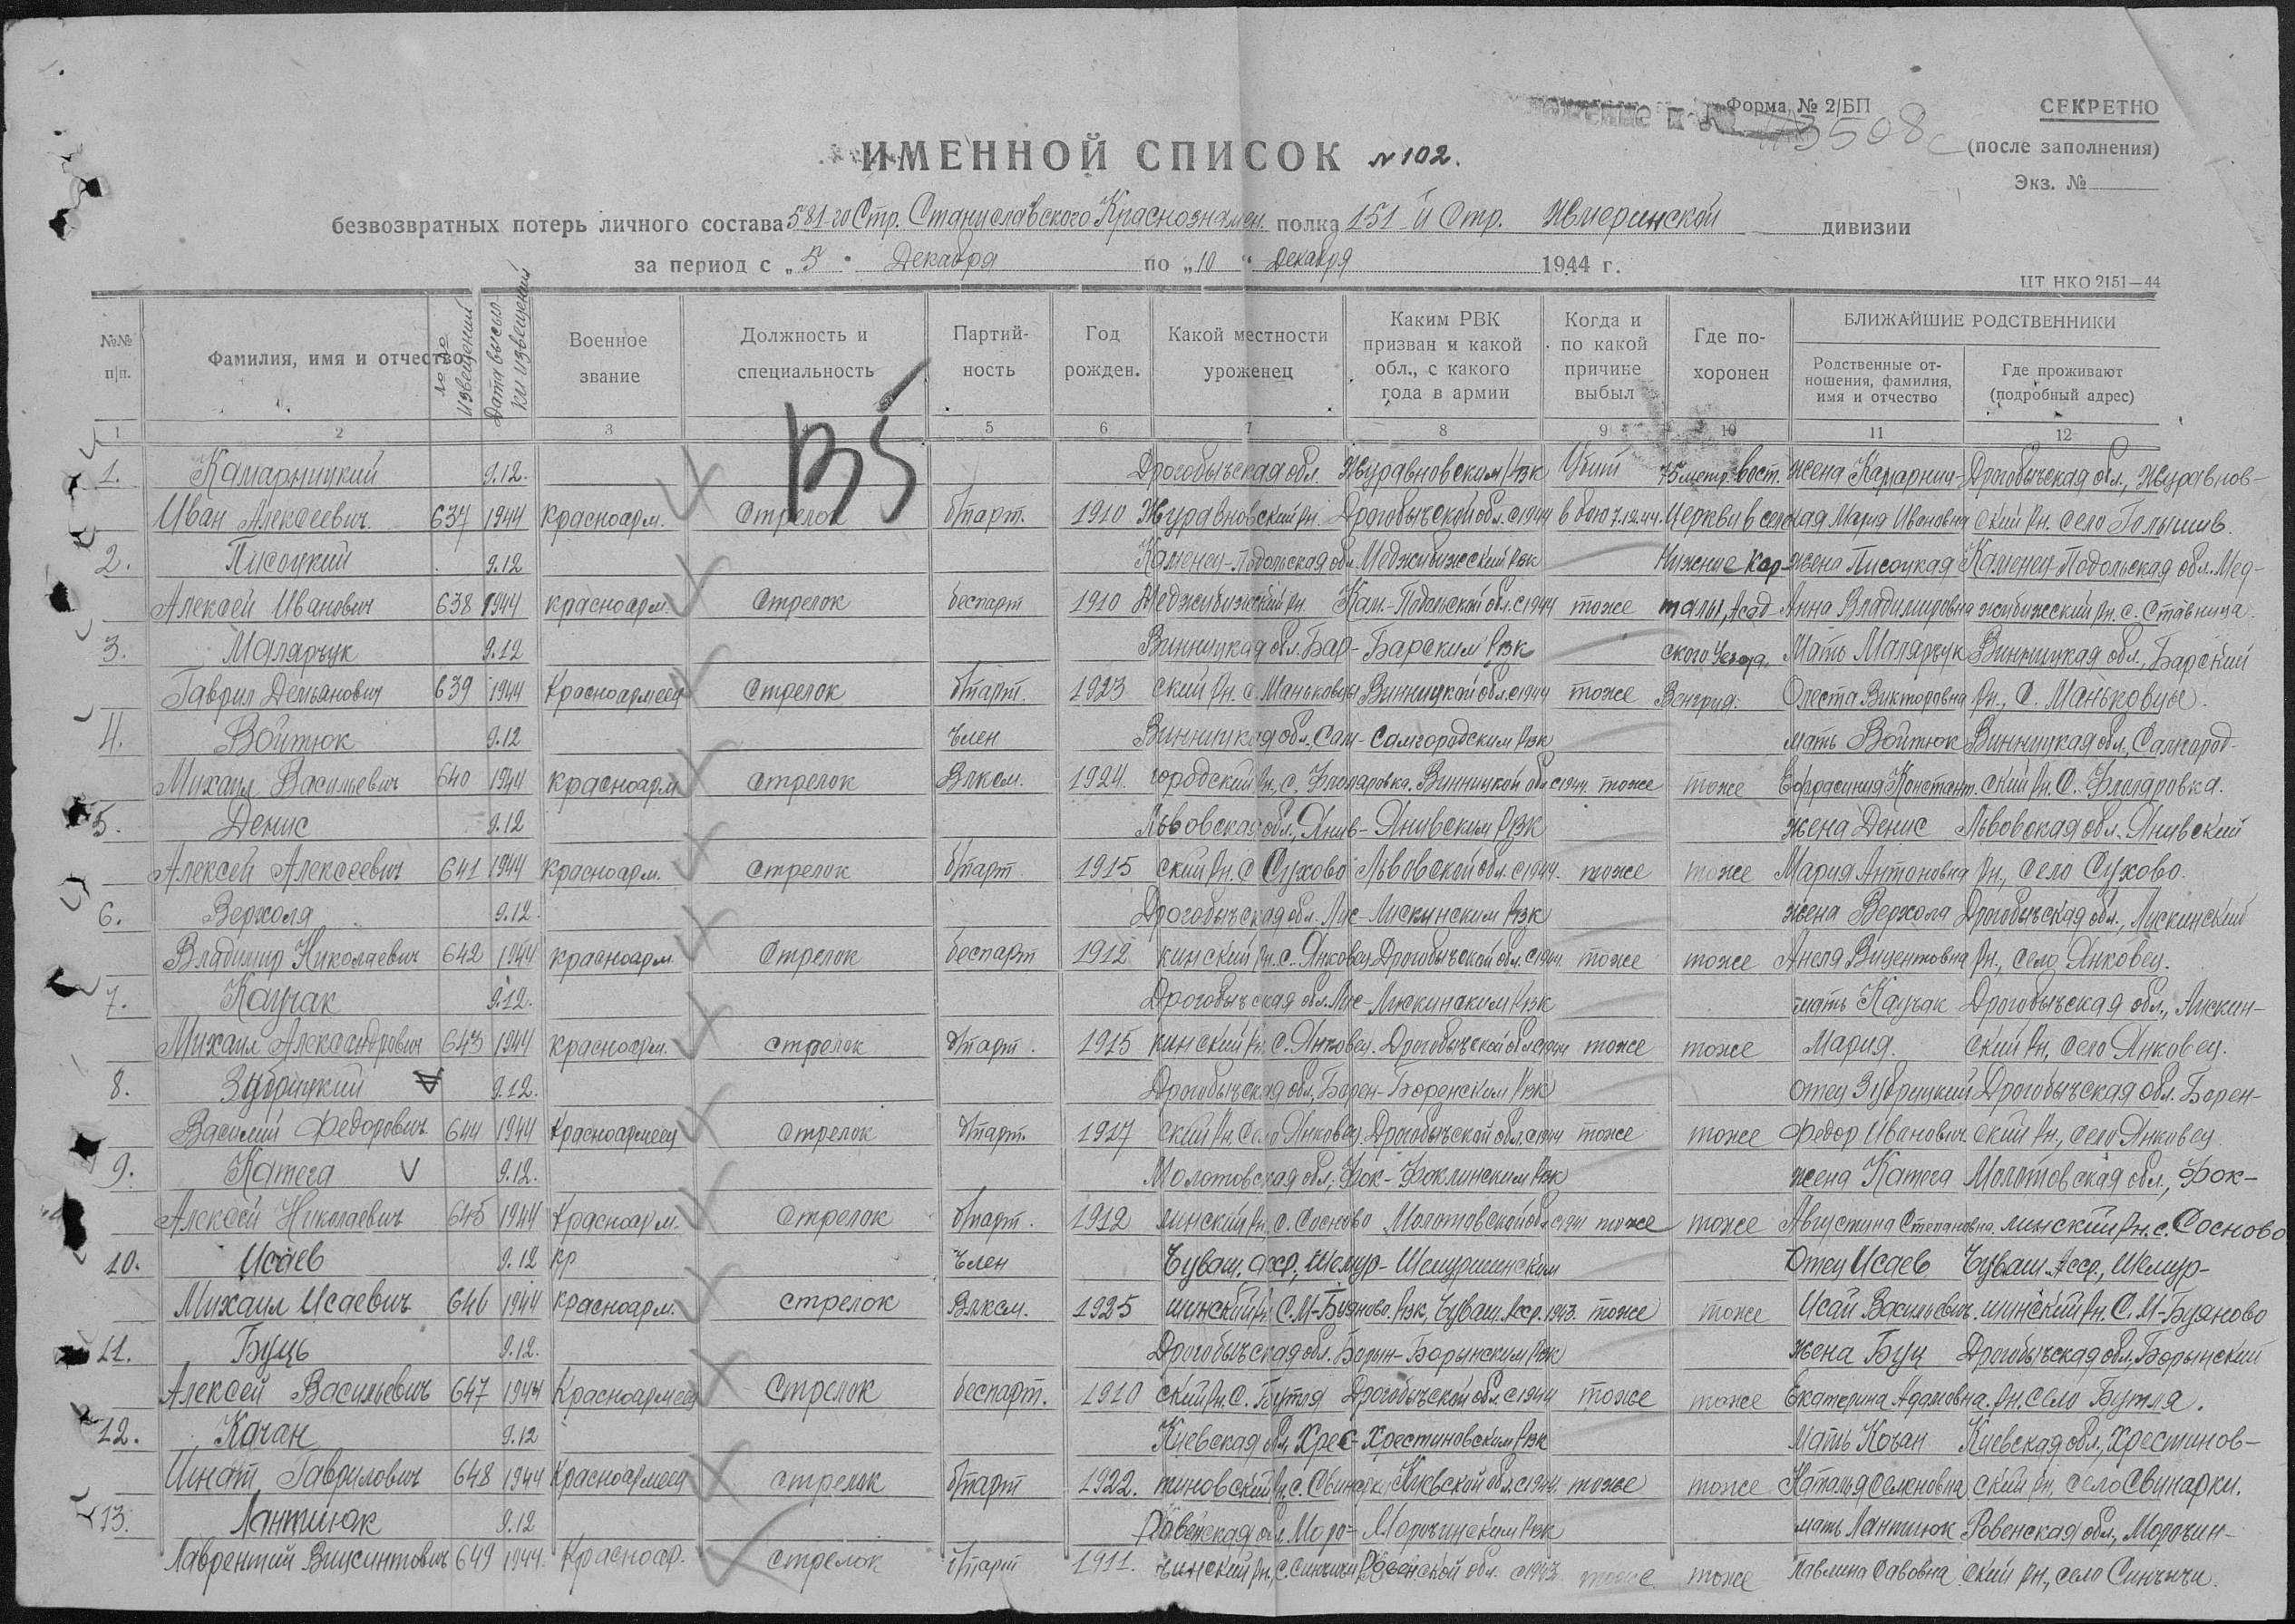 Форма № 2/БП
СЕКРЕТНО
3508с
(после заполнения)
ИМЕННОЙ СПИСОК № 102.
Экз. №
безвозвратных потерь личного состава 581-го Стр. Станиславского Краснознамен. полка 151-й Стр. Жмеринской дивизии
за период с „5" Декабря по „10" Декабря 1944 г.
ЦТ НКО 2151—44
№№ п/п. Фамилия, имя и отчество №№ извещений Дата высылки извещений Военное звание Должность и специальность Партийность Год рожден. Какой местности уроженец Каким РВК призван и какой обл., с какого года в армии Когда и по какой причине выбыл Где похоронен БЛИЖАЙШИЕ РОДСТВЕННИКИ
Родственные отношения, фамилия, имя и отчество Где проживают (подробный адрес)
1 2 3 4 5 6 7 8 9 10 11 12
В5
1. Камарницкий 9.12. Дрогобычская обл. Журавновским Рвк Убит 75 метр. вост. жена Камарниц- Дрогобычская обл., Журавнов-
Иван Алексеевич 637 1944 Красноарм. Стрелок б/парт. 1910 Журавновский рн. Дрогобычской обл. с 1944 в бою 7.12.44. Церкви в селе кая Мария Ивановна ский рн. село Голышив.
2. Писоцкий 9.12 Каменец-Подольская обл. Меджибижский Рвк Нижние Кар- жена Писоцкая Каменец-Подольская обл. Мед-
Алексей Иванович 638 1944 красноарм. Стрелок беспарт 1910 Меджибижский рн. Кам.-Подольской обл. с 1944 тоже Анна Владимировна жибижский рн. с. Ставница.
3. Малярчук 9.12 Винницкая обл. Бар- Барским Рвк ского Уезда, Мать Малярчук Винницкая обл., Барский
Гаврил Демьянович 639 1944 Красноармеец Стрелок б/парт. 1923 ский рн. с. Маньковцы Винницкой обл. с 1944 тоже Венгрия. Олеста Викторовна рн., с. Маньковцы.
4. Войтюк 9.12 Член Винницкая обл. Сам- Самгородским Рвк мать Войтюк Винницкая обл., Самгород-
Михаил Васильевич 640 1944 красноарм Стрелок Влксм. 1924. городский рн., с. Флоларовка. Винницкой обл. с 1944. тоже тоже Ефросиния Констант. ский рн. с. Флоларовка.
5. Денис 9.12 Львовская обл., Янив- Янивским Рвк жена Денис Львовская обл. Янивский
Алексей Алексеевич 641 1944 Красноарм. Стрелок б/парт 1915 ский рн. с Сухово Львовской обл. с 1944. тоже тоже Мария Антоновна рн., село Сухово.
6. Верхоля 9.12. Дрогобычская обл. Лис- Лискинским Рвк жена Верхола Дрогобычская обл., Лискинский
Владимир Николаевич 642 1944 красноарм. Стрелок беспарт 1912 кинский рн. с. Янковец Дрогобычской обл. с 1944. тоже тоже Анеля Вицентовна рн., село Янковец.
7. Каучак 9.12. Дрогобычская обл. Лис- Лискинским Рвк мать Каучак Дрогобычская обл., Лискин-
Михаил Александрович 643 1944 красноарм. стрелок б/парт. 1915 кинский рн. с. Янковец. Дрогобычской обл. с 1944 тоже тоже Мария. ский рн, село Янковец.
8. Зубрицкий 9.12. Дрогобычская обл., Борен- Боренским Рвк отец Зубрицкий Дрогобычская обл. Борен-
Василий Федорович 644 1944 Красноармеец Стрелок б/парт. 1927 ский рн. село Янковец Дрогобычской обл. с 1944 тоже тоже Федор Иванович ский рн., село Янковец
9. Катега 9.12. Молотовская обл., Фок- Фоклинским Рвк жена Катега Молотовская обл., Фок-
Алексей Николаевич 645 1944 Красноарм. Стрелок б/парт. 1912 линский рн, с. Сосново Молотовской обл. с 1941 тоже тоже Августина Степановна. линский рн. с. Сосново
10. Исаев 9.12 кр Член Чуваш. асср, Шемур- Шемуршинским Отец Исаев Чуваш. Асср., Шемур-
Михаил Исаевич 646 1944 красноарм. стрелок Влксм. 1925 шинский рн. С. М-Буяново. Рвк, Чуваш. Асср. 1943. тоже тоже Исай Васильевич. шинский рн. С. М-Буяново
11. Буць 9.12. Дрогобычская обл. Борын- Борынским Рвк жена Буц Дрогобычская обл. Борынский
Алексей Васильевич 647 1944 Красноармеец Стрелок беспарт. 1910 ский рн. С. Бутля Дрогобычской обл. с 1944 тоже тоже Екатерина Адамовна. рн. село Бутля.
12. Качан 9.12 Киевская обл, Хрес- Хрестиновским Рвк Мать Качан Киевская обл., Хрестинов-
Игнат Гаврилович 648 1944 Красноармеец стрелок б/парт 1922. тиновский рн. с. Свинарки Киевской обл. с 1944. тоже тоже Наталья Семеновна ский рн. село Свинарки.
13. Лантиюк 9.12 Ровенская обл. Моро- Морочинским Рвк мать Лантиюк Ровенская обл., Морочин-
Лаврентий Викентович 649 1944. Красноар. стрелок б/парт 1911. чинский рн., с. Синчичи Ровенской обл. тоже тоже Павлина Савовна ский рн., село Синчичи.